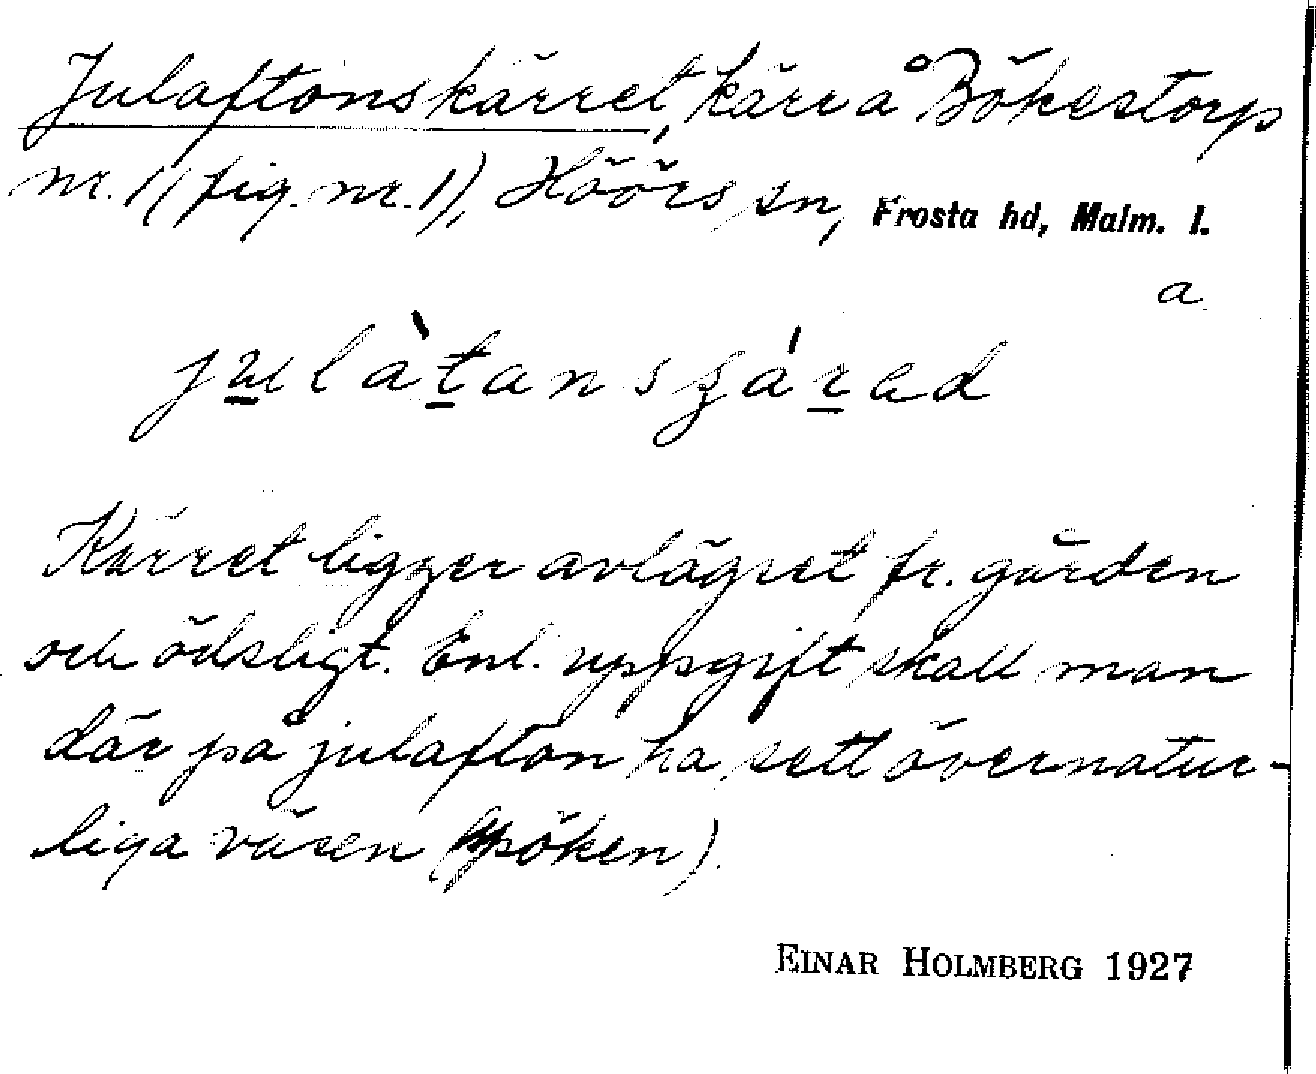 Julaftonskärret, kärr å Bökestorp
nr. 1 (fig. nr. 1), Höörs sn, Frosta hd, Malm. l.
a
Kärret ligger avlägset fr. gården
och ödsligt. Enl. uppgift skall man
där på julafton ha sett övernatur-
liga väsen (spöken).
EINAR HOLMBERG 1927